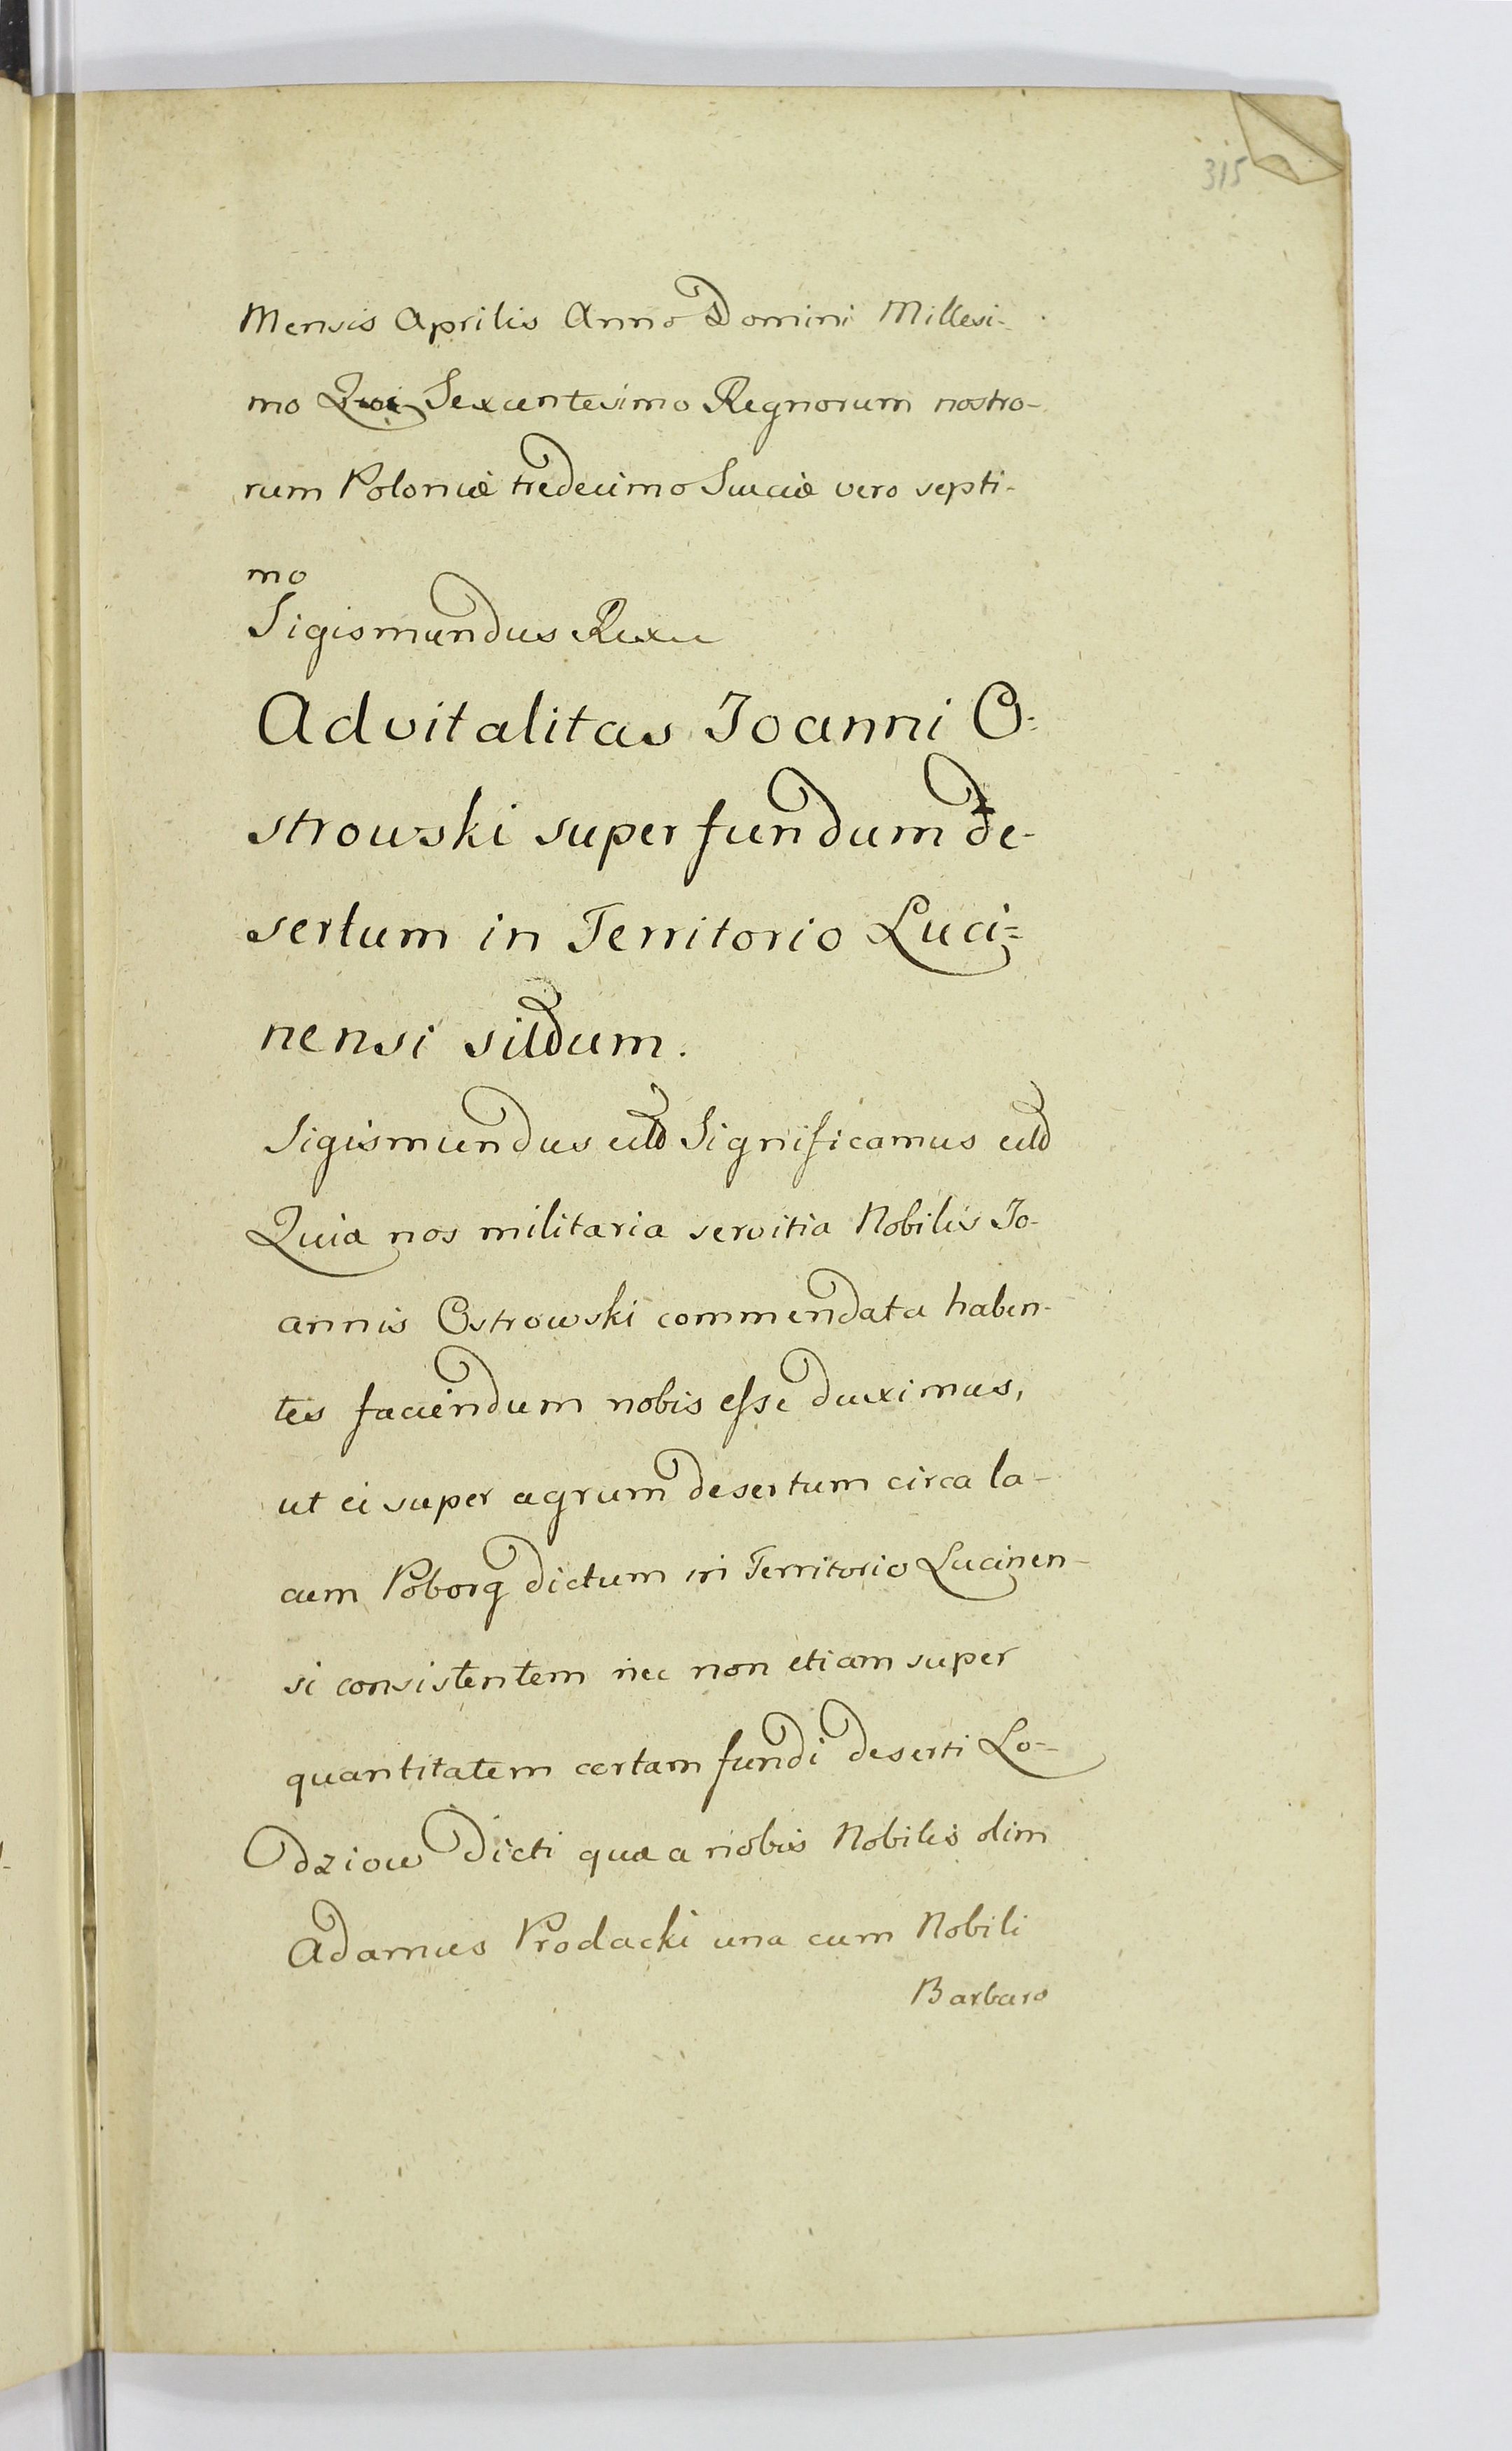 315
Mensis Aprilis Anno Domini Millesi-
mo Qui Sexcentesimo Regnorum nostro-
rum Poloniæ tredecimo Sueciæ vero septi-
mo
Sigismundus Rex
Advitalitas Joanni O-
strowski super fundum de-
sertum in Territorio Luci=
nensi situm.
Sigismundus Significamus
Quia nos militaria servitia Nobilis Jo-
annis Ostrowski commendata haben-
tes faciendum nobis esse duximus,
ut ei super agrum desertum circa la-
cum Poborg dictum in Territorio Lucinen-
si consistentem nec non etiam super
quantitatem certam fundi deserti Lo-
dziow dicti quæ a nobis Nobilis olim
Adamus Prodacki una cum Nobili
Barbara